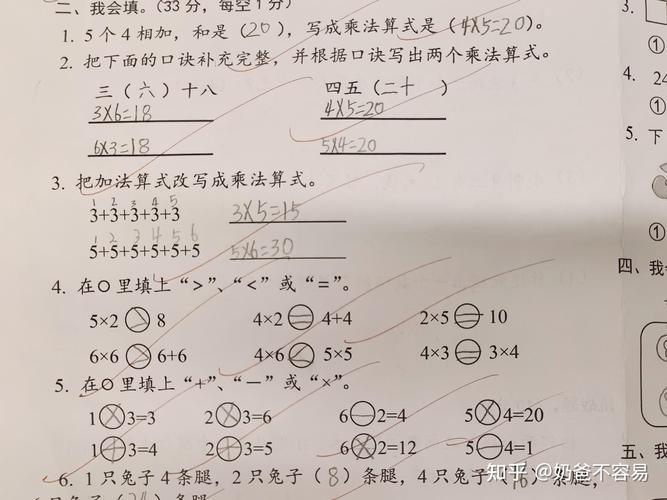 二、我会填。(33 分，每空 1 分)
1. 5 个 4 相加，和是 (20)，写成乘法算式是 (4×5=20)。
2. 把下面的口诀补充完整，并根据口诀写出两个乘法算式。
三 (六) 十八 四五 (二十)
3×6=18 4×5=20
6×3=18 5×4=20
3. 把加法算式改写成乘法算式。
1 2 3 4 5
3+3+3+3+3 3×5=15
1 2 3 4 5 6
5+5+5+5+5+5 5×6=30
4. 在○里填上“>”、“<”或“=”。
5×2 > 8 4×2 = 4+4 2×5 = 10
6×6 > 6+6 4×6 < 5×5 4×3 = 3×4
5. 在○里填上“+”、“-”或“×”。
1×3=3 2×3=6 6-2=4 5×4=20
1+3=4 2+3=5 6×2=12 5-4=1
6. 1 只兔子 4 条腿，2 只兔子 (8) 条腿，4 只兔子 (16) 条腿，
3.
①
4.
①
5. 下
①
四、我会
五、我
知乎 @奶爸不容易